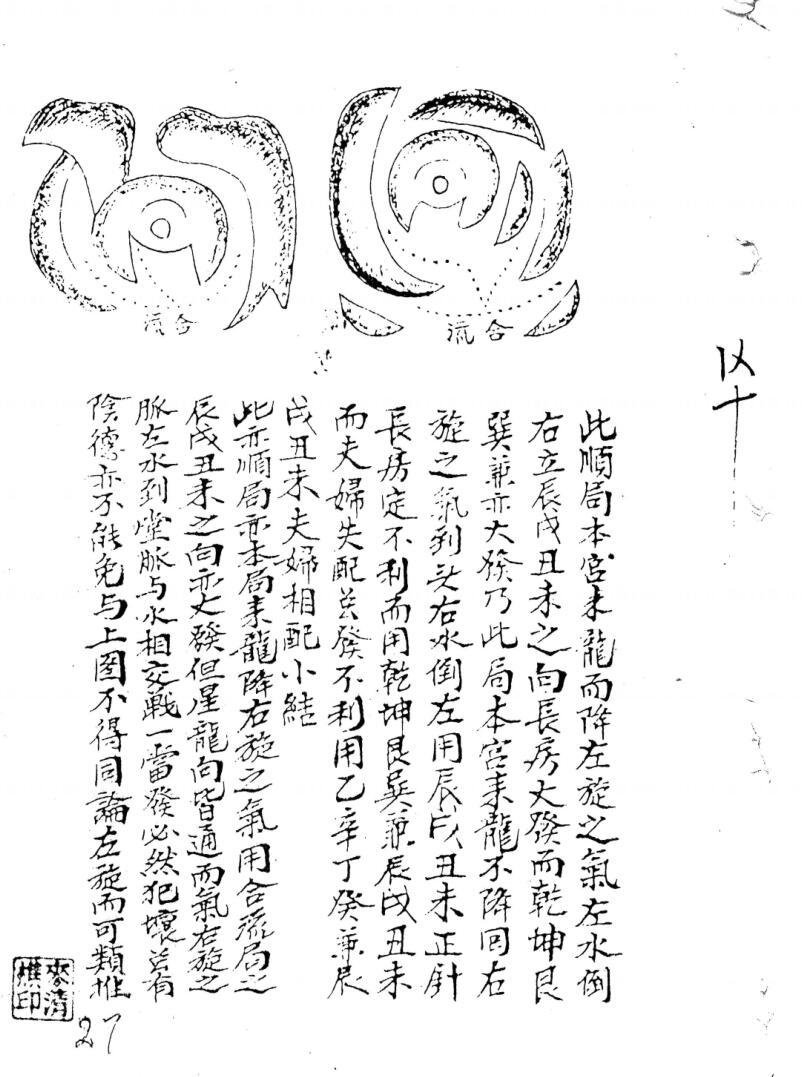 合流
流合
此順局本宮来龍而降左旋之氣左水倒
右立辰戌丑未之向長房大發而乾坤艮
巽兼亦大發乃此局本宮来龍不降同右
旋之氣到头右水倒左用辰戌丑未正針
長房定不利而用乾坤艮巽兼辰戌丑未
而夫婦失配縂發不利用乙辛丁癸兼辰
戌丑未夫婦相配小結
此亦順局亦本局来龍降右旋之氣用合流局之
辰戌丑未之向亦大發但星龍向皆通而氣右旋之
脈左水到堂脈与水相交戰一當發必然犯壞縂有
陰德亦不能免与上图不得同論左旋而可類推
麥清
27